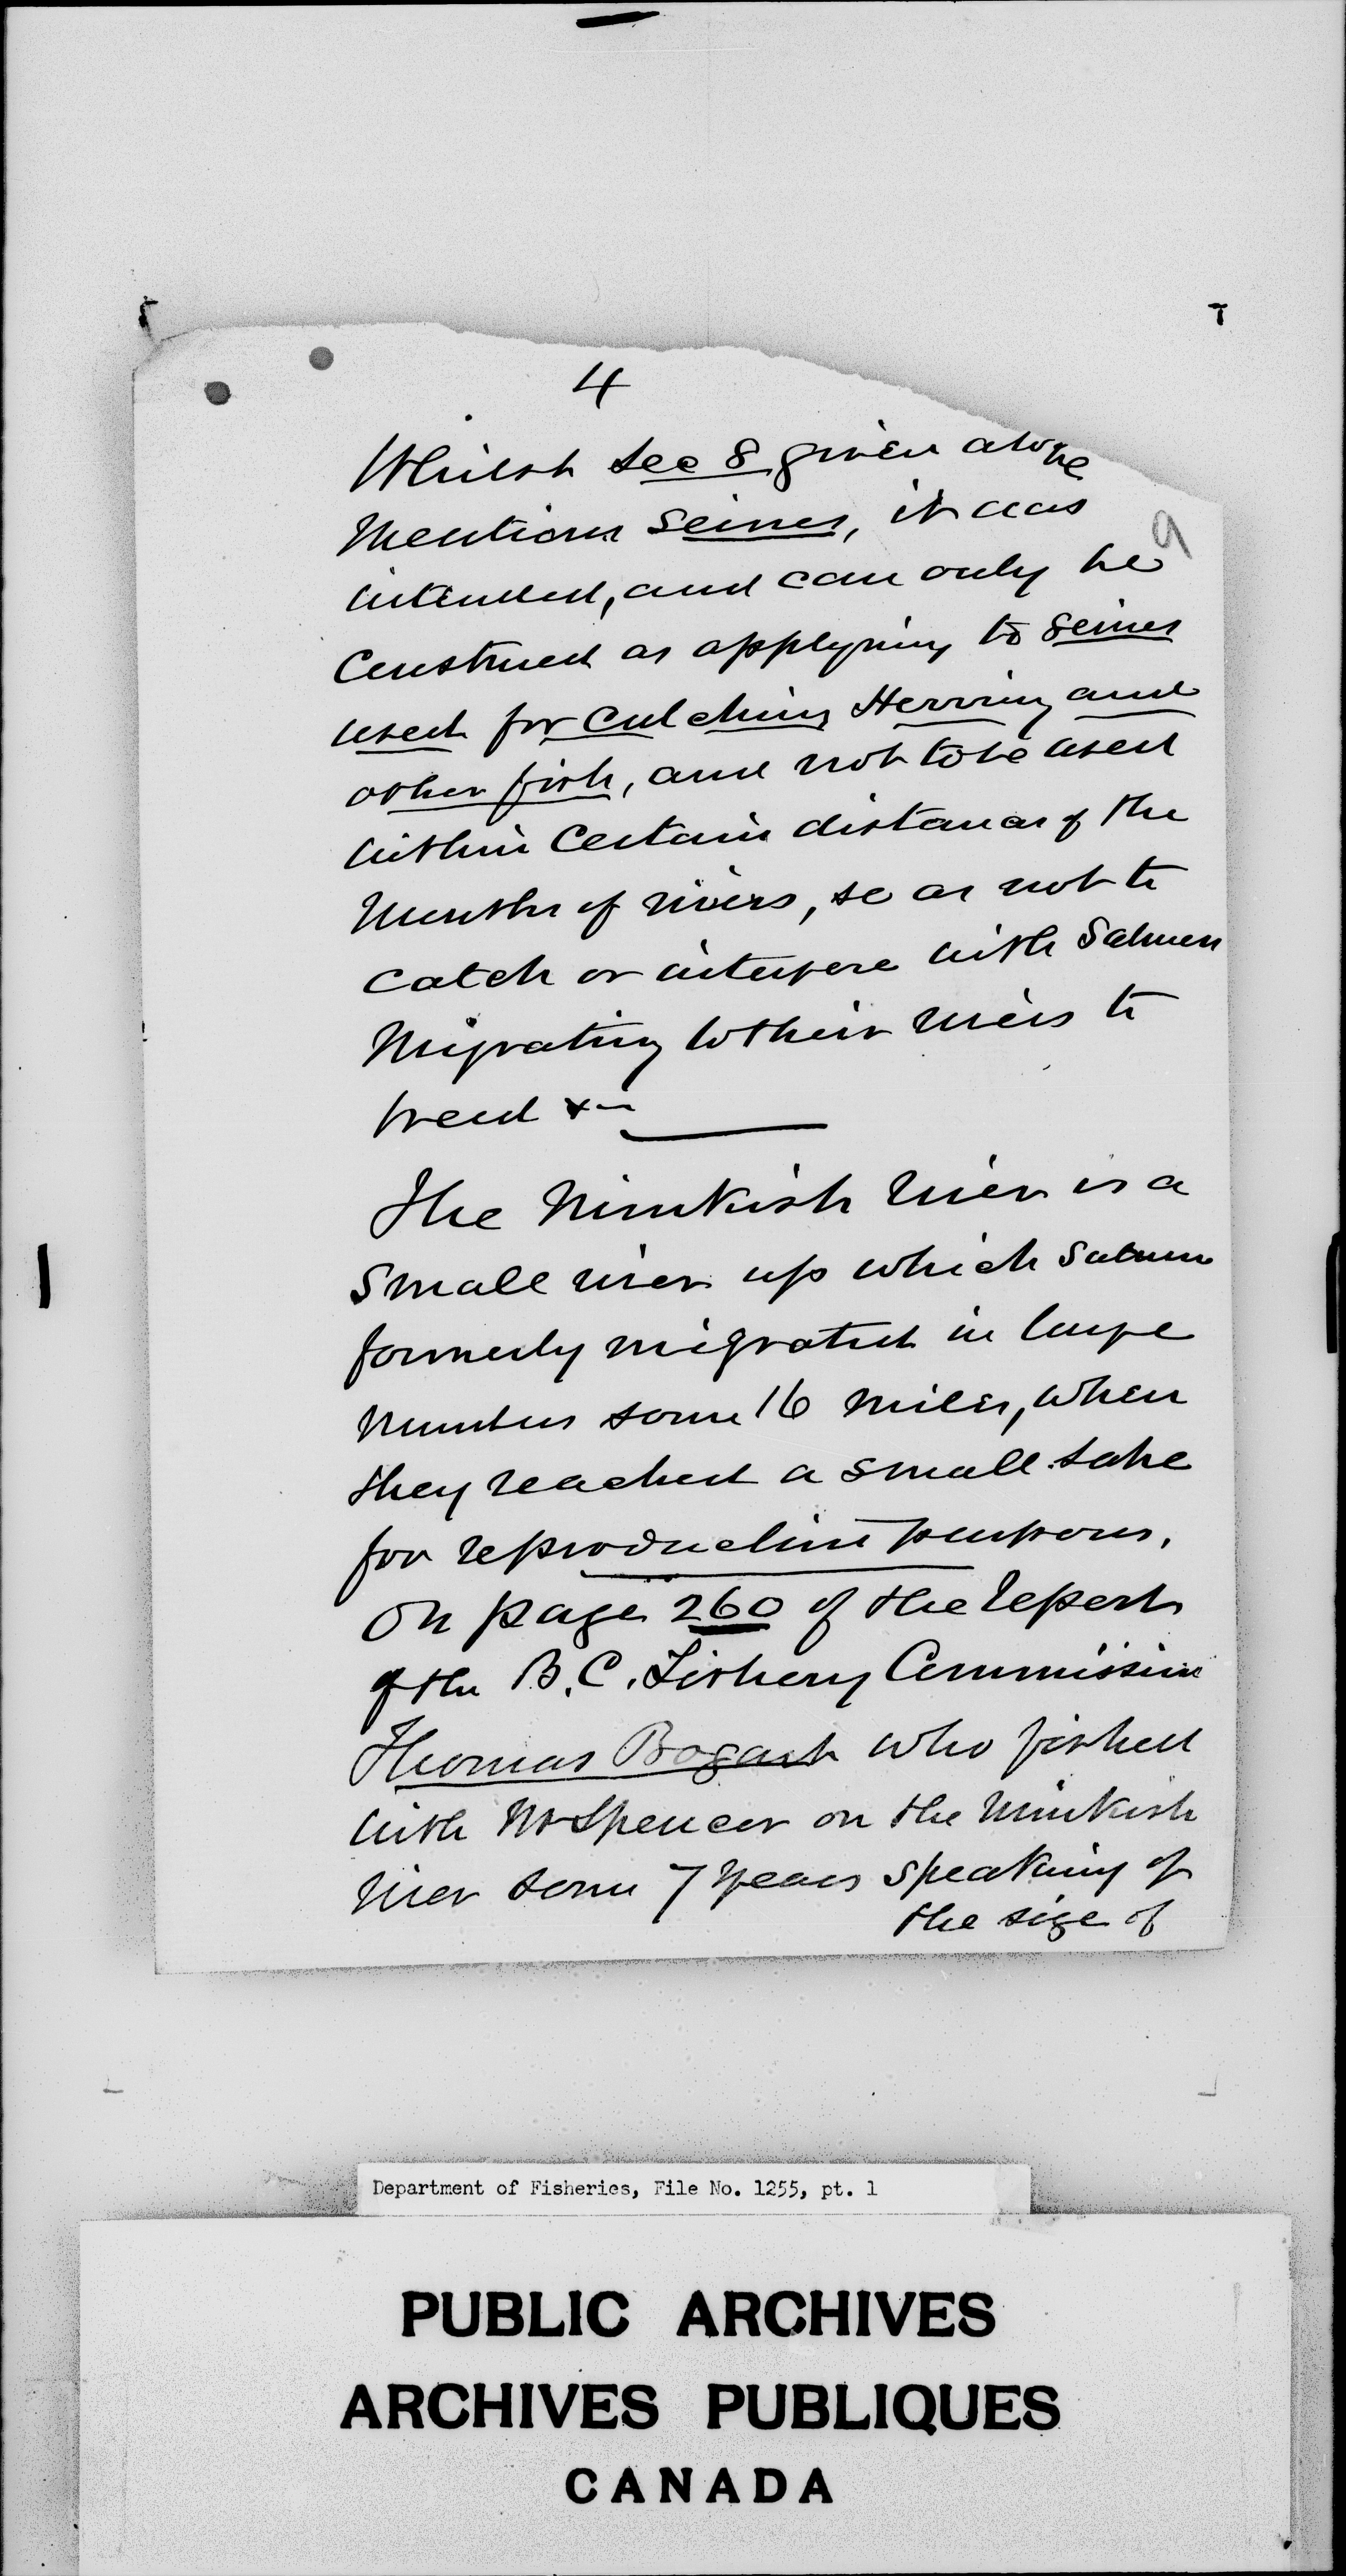 4
Whilst sec 8 given above
mentions seines, it was
9
intended, and can only be
construed as applying to seines
used for catching Herring and
other fish, and not to be used
within certain distances of the
mouths of rivers, so as not to
catch or interfere with Salmon
migrating to their rivers to
breed &c
The Nimkish river is a
small river up which salmon
formerly migrated in large
numbers some 16 miles, when
they reached a small lake
for reproductive purposes.
On page 260 of the report
of the B.C. Fishery Commission
Thomas Bogart who fished
with Mr Spencer on the Nimkish
river some 7 years speaking of
the size of
Department of Fisheries, File No. 1255, pt. 1
PUBLIC ARCHIVES
ARCHIVES PUBLIQUES
CANADA